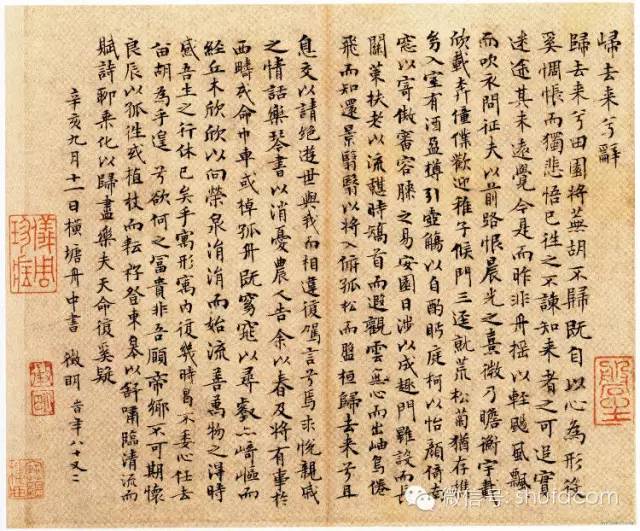 歸去来兮辭
歸去来兮田園将蕪胡不歸既自以心為形役
奚惆悵而獨悲悟已往之不諫知来者之可追實
迷途其未遠覺今是而昨非舟摇以軽颺風飄飄
而吹衣問征夫以前路恨晨光之熹微乃瞻衡宇載
欣載奔僮僕歡迎稚子候門三逕就荒松菊猶存携
幼入室有酒盈樽引壺觴以自酌眄庭柯以怡顔倚南
窓以寄傲審容膝之易安園日涉以成趣門雖設而長
關策扶老以流憩時矯首而遐觀雲無心而出岫鳥倦
飛而知還景翳翳以将入撫孤松而盤桓歸去来兮且
息交以請絶遊世與我而相違復駕言兮焉求悦親戚
之情話樂琴書以消憂農人告余以春及将有事於
西疇或命巾車或棹孤舟既窈窕以尋壑亦崎嶇而
経丘木欣欣以向榮泉涓涓而始流善萬物之得時
感吾生之行休已矣乎寓形寓内復幾時曷不委心任去
留胡為乎遑兮欲何之冨貴非吾願帝郷不可期懐
良辰以孤徃或植杖而耘籽登東皋以舒嘯臨清流而
賦詩聊乗化以歸盡樂夫天命復奚疑
辛亥九月十一日横塘舟中書 徵明 時年八十又二
儀周珍藏
微信号: shufd.com